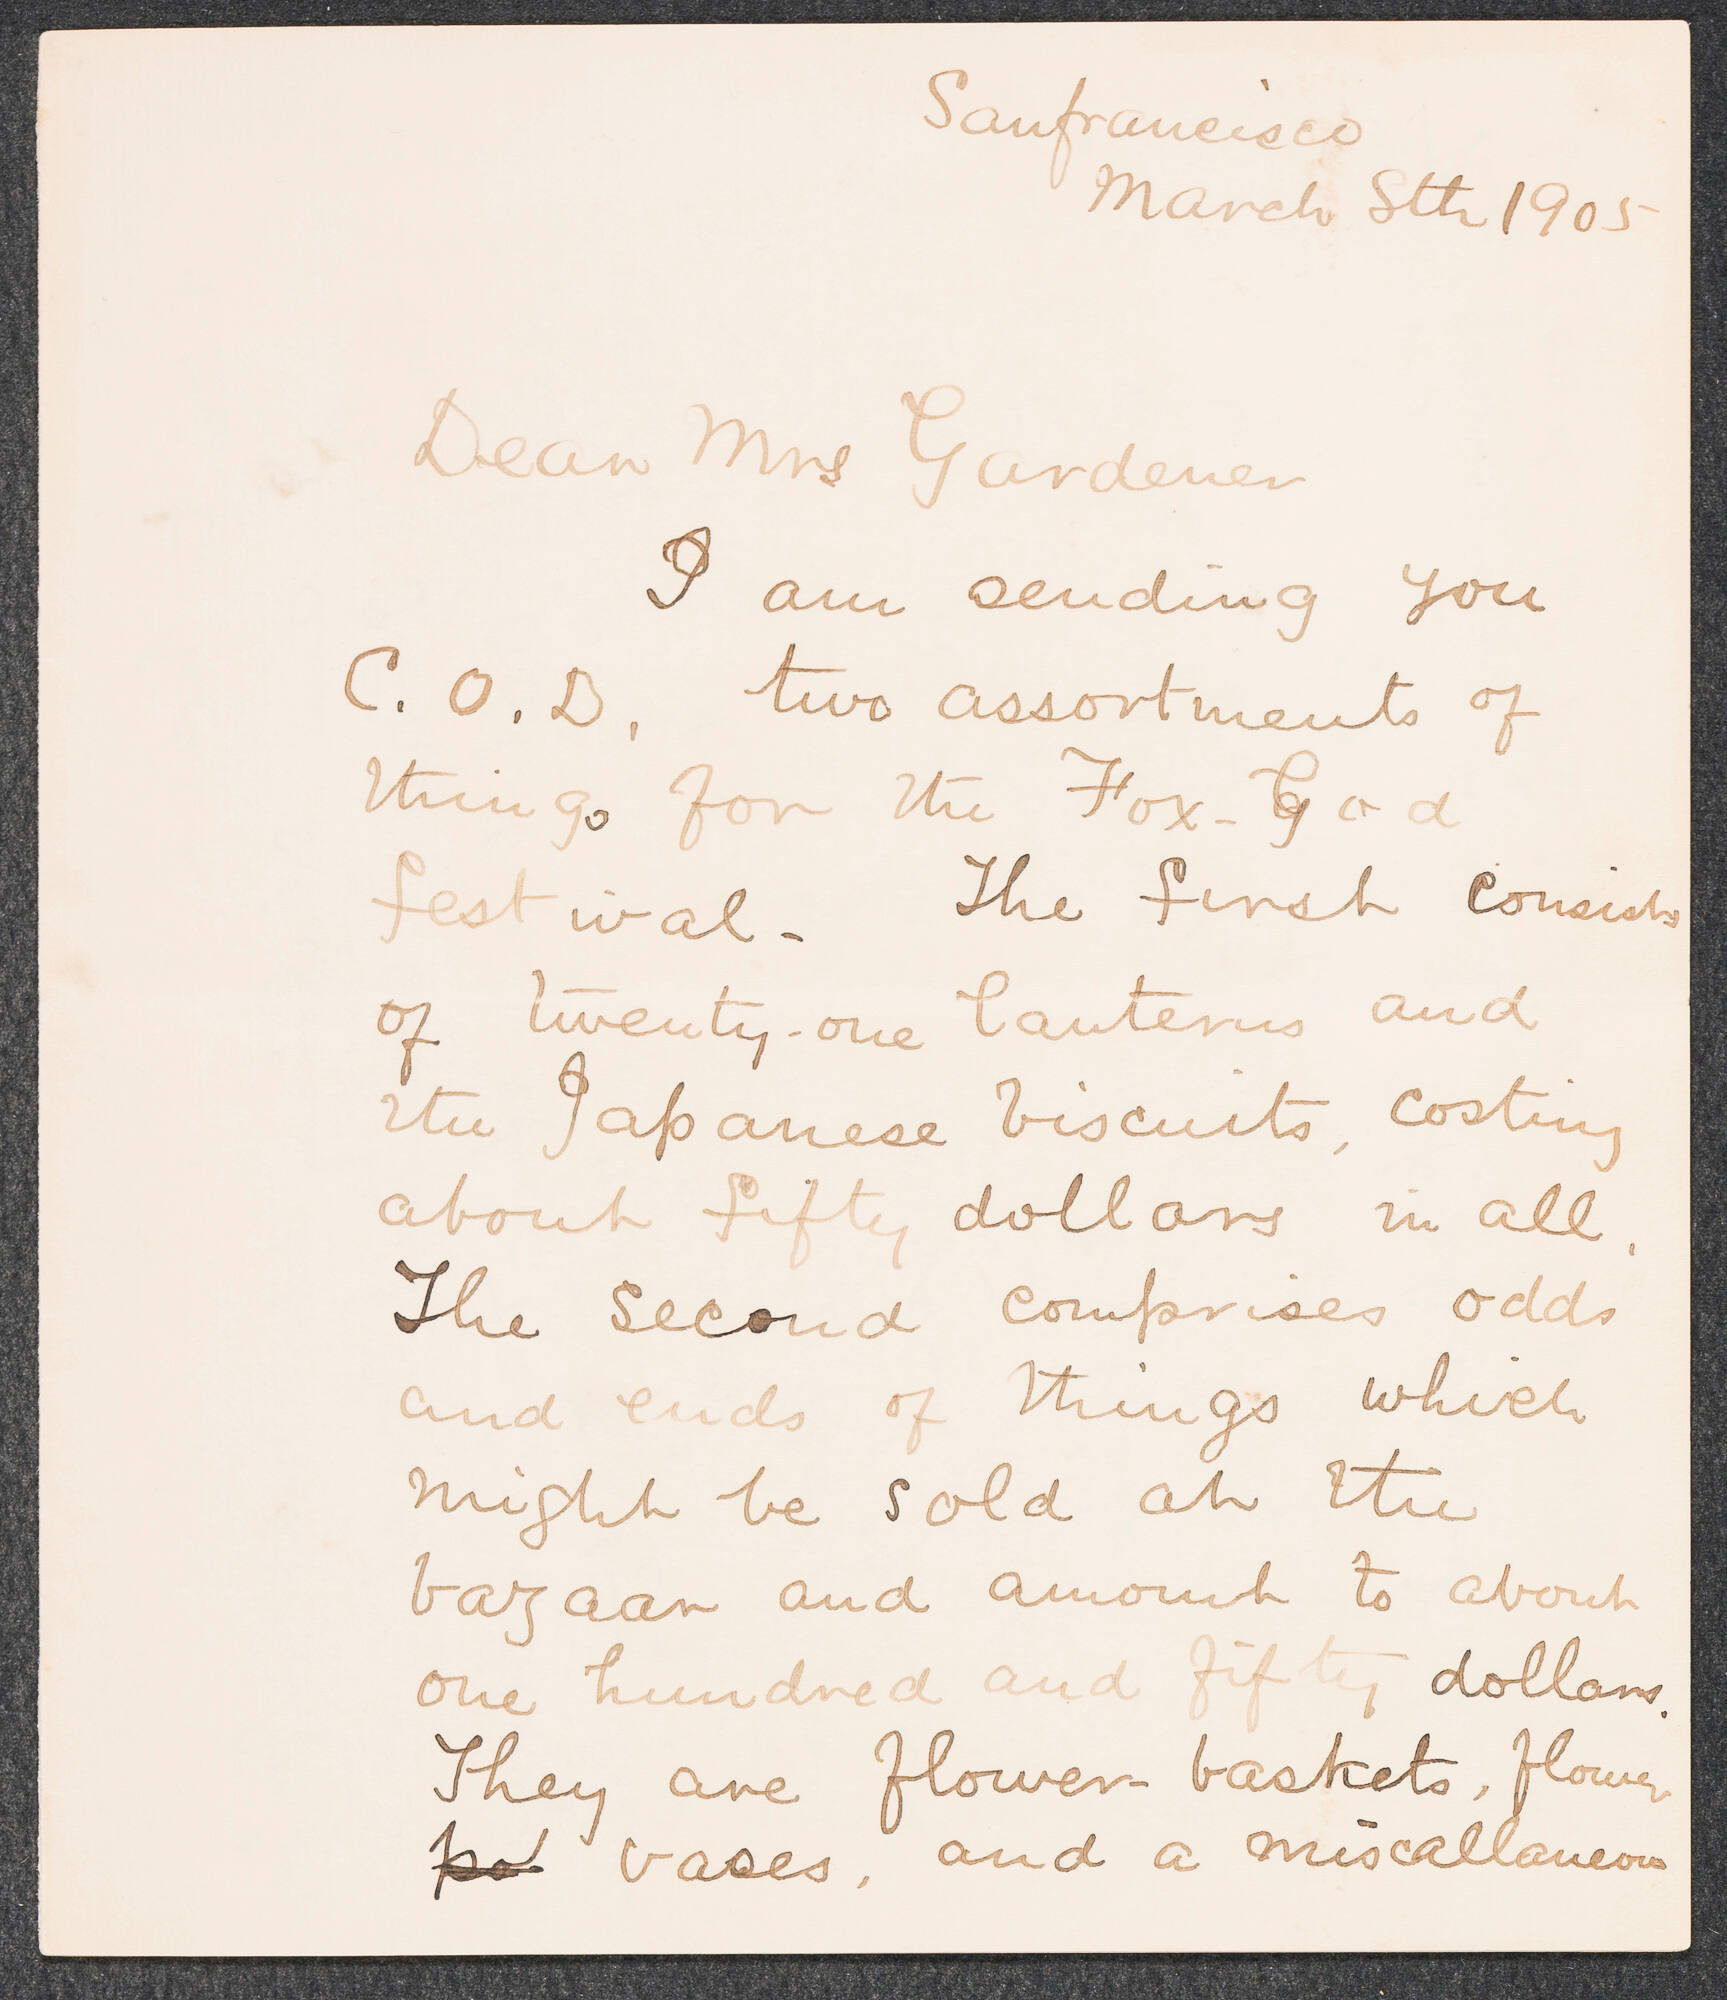 Sanfrancisco
March 8th 1905
Dear Mrs Gardener
I am sending you
C.O.D. two assortments of
things for the Fox-God
festival - The first consists
of twenty-one lanterns and
the Japanese biscuits, costing
about fifty dollars in all.
The second comprises odds
and ends of things which
might be sold at the
bazaar and amount to about
one hundred and fifty dollars.
They are flower-baskets, flower
po vases, and a miscallaneous